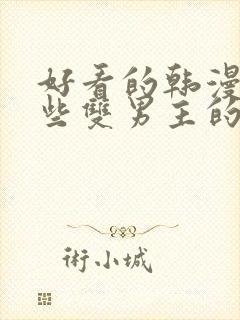 好看的韩漫
些雙男主的
術小城